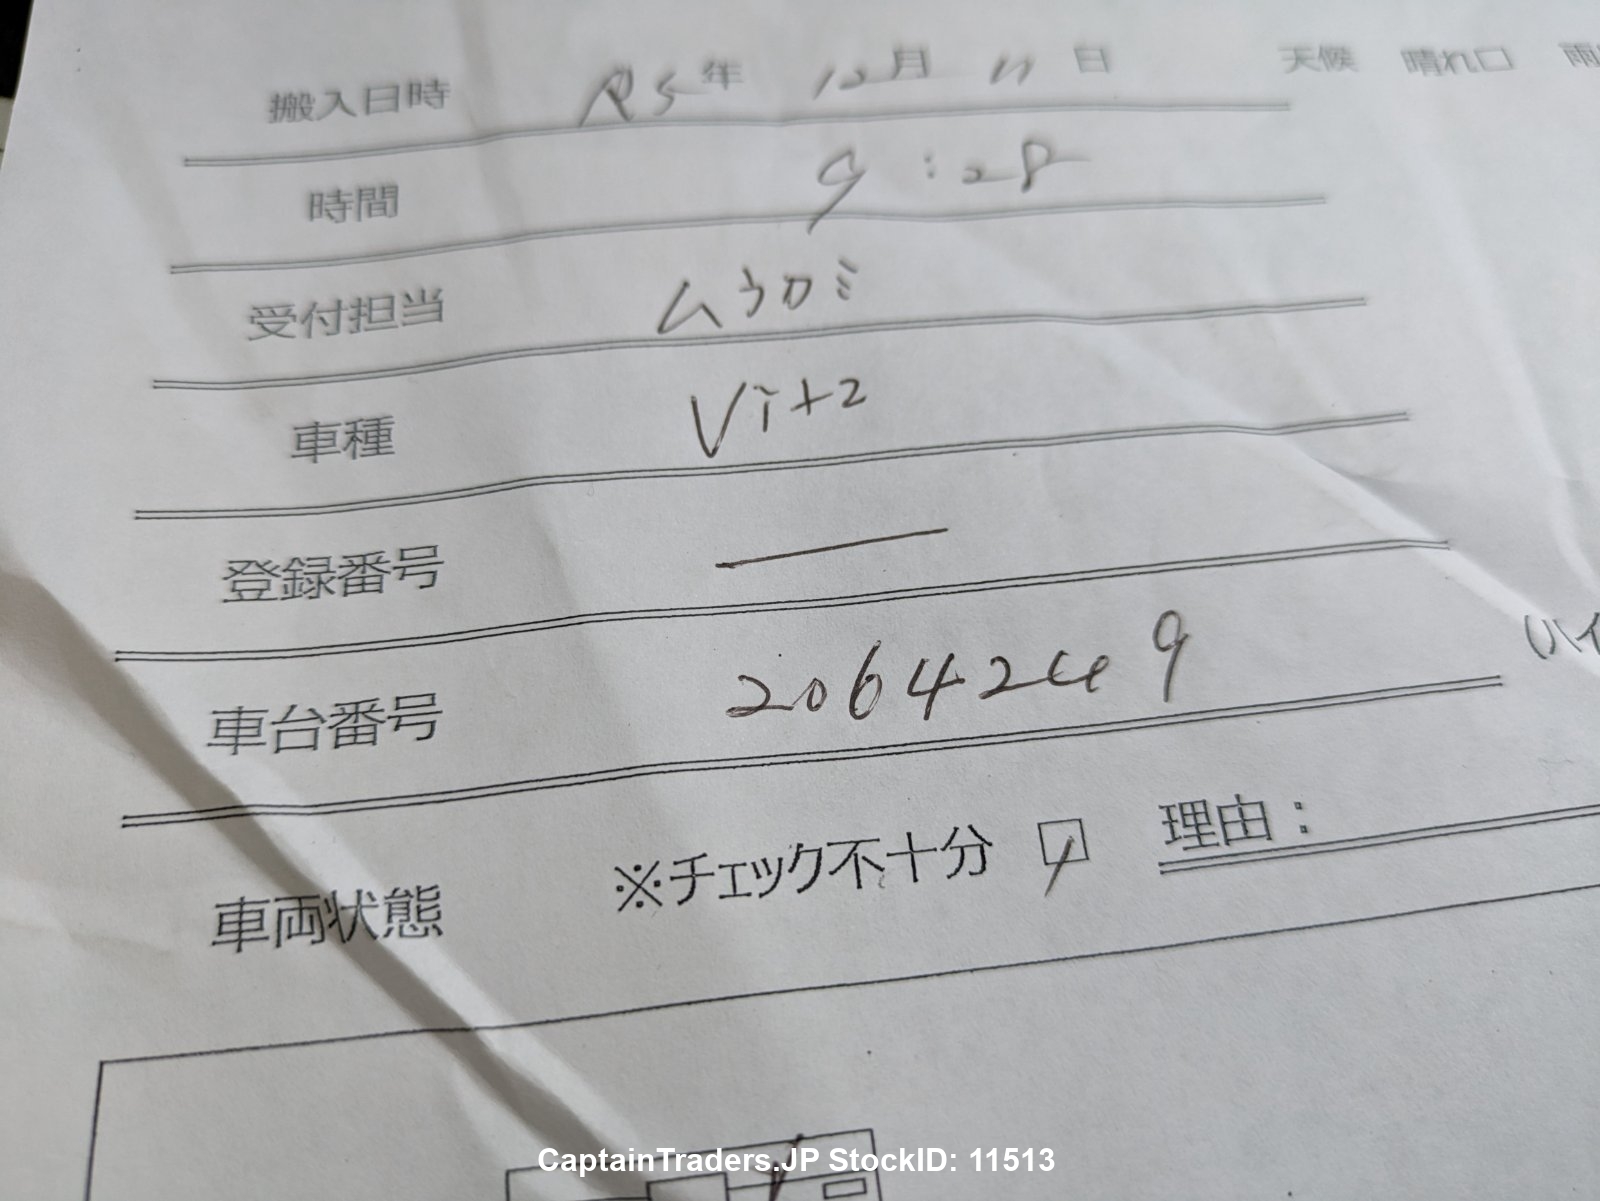 搬入日時 R5年 12月 11日 天候 晴れ□ 雨
時間 9:28
受付担当 ムラカミ
車種 Vitz
登録番号 —
車台番号 2064249
(ハイ
車両状態 ※チェック不十分 □ 理由:
CaptainTraders.JP StockID: 11513